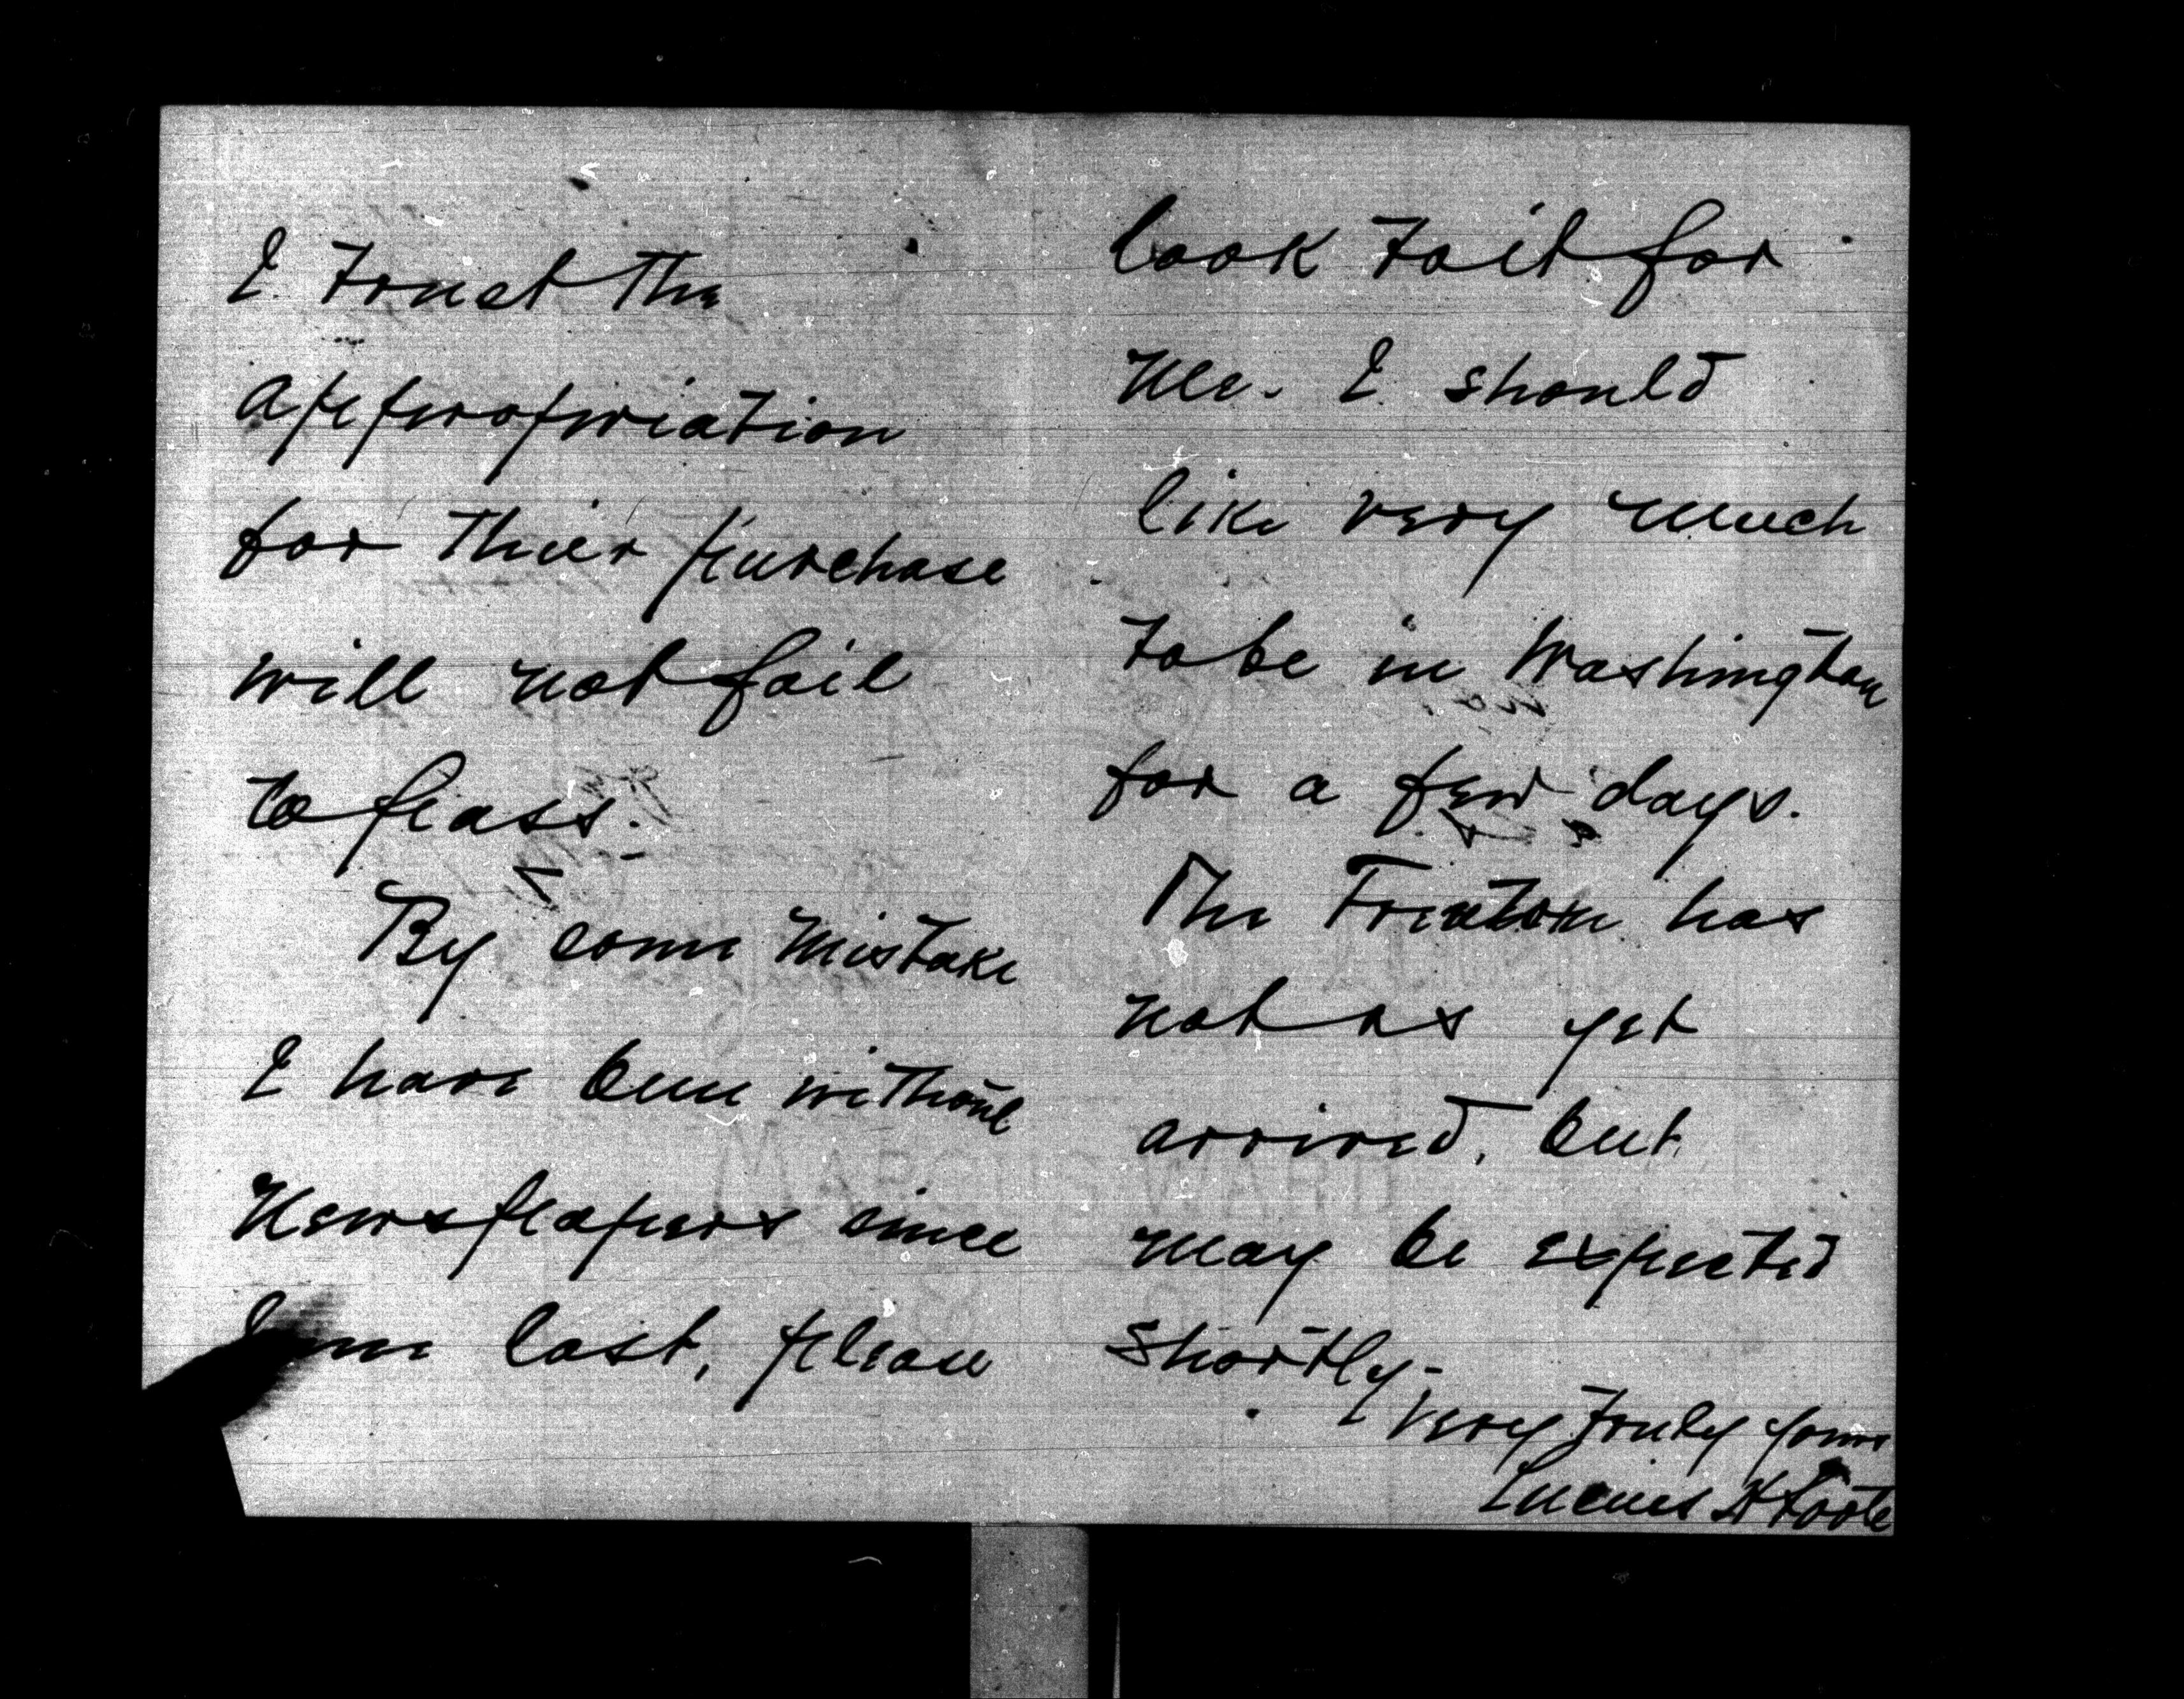 I trust the
appropriation
for thier purchase
will not fail
to pass.
By some mistake
I have been without
Newspapers since
June last, please
look to it for
me. I should
like very much
to be in Washington
for a few days.
The Trenton has
not as yet
arrived, but
may be expected
shortly.
Very truly yours
Lucius H Foote